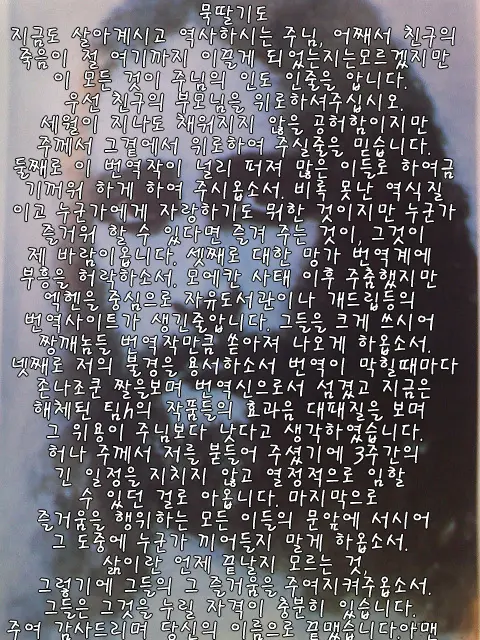 묵딸기도
지금도 살아계시고 역사하시는 주님, 어째서 친구의
죽음이 절 여기까지 이끌게 되었는지는모르겠지만
이 모든 것이 주님의 인도 인줄을 압니다.
우선 친구의 부모님을 위로하셔주십시오.
세월이 지나도 채워지지 않을 공허함이지만
주께서 그곁에서 위로하여 주실줄을 믿습니다.
둘째로 이 번역작이 널리 퍼져 많은 이들로 하여금
기꺼워 하게 하여 주시옵소서. 비록 못난 역식질
이고 누군가에게 자랑하기도 뭐한 것이지만 누군가
즐거워 할 수 있다면 즐겨 주는 것이, 그것이
제 바람이옵니다. 셋째로 대한 망가 번역계에
부흥을 허락하소서. 모에칸 사태 이후 주춤했지만
엑헨을 중심으로 자유도서관이나 개드립등의
번역사이트가 생긴줄압니다. 그들을 크게 쓰시어
짱깨놈들 번역작만큼 쏟아져 나오게 하옵소서.
넷째로 저의 불경을 용서하소서 번역이 막힐때마다
존나조쿤 짤을보며 번역신으로서 섬겼고 지금은
해체된 팀h의 작품들의 효과음 대패질을 보며
그 위용이 주님보다 낫다고 생각하였습니다.
허나 주께서 저를 붙들어 주셨기에 3주간의
긴 일정을 지치지 않고 열정적으로 임할
수 있던 걸로 아옵니다. 마지막으로
즐거움을 행위하는 모든 이들의 문앞에 서시어
그 도중에 누군가 끼어들지 말게 하옵소서.
삶이란 언제 끝날지 모르는 것,
그렇기에 그들의 그 즐거움을 주여지켜주옵소서.
그들은 그것을 누릴 자격이 충분히 있습니다.
주여 감사드리며 당신의 이름으로 끝맺습니다아맨